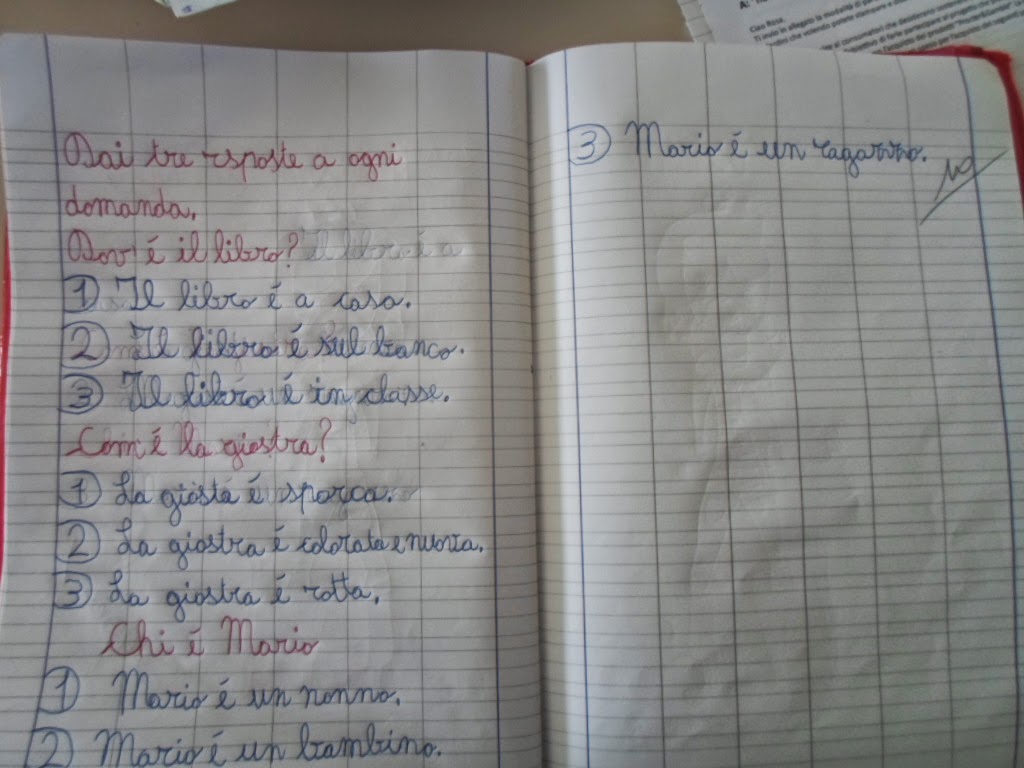 Dai tre rsposte a ogni
domanda.
Dov'é il libro? Il libro é a
1 Il libro é a casa.
2 Il libro é sul banco.
3 Il libro é in classe.
Com'é la giostra?
1 La giosta é sporca.
2 La giostra é colorata e nuova.
3 La giostra é rotta.
Chi é Mario
1 Mario é un nonno.
2 Mario é un bambino.
3 Mario é un ragazzino.
Ciao Rosa,